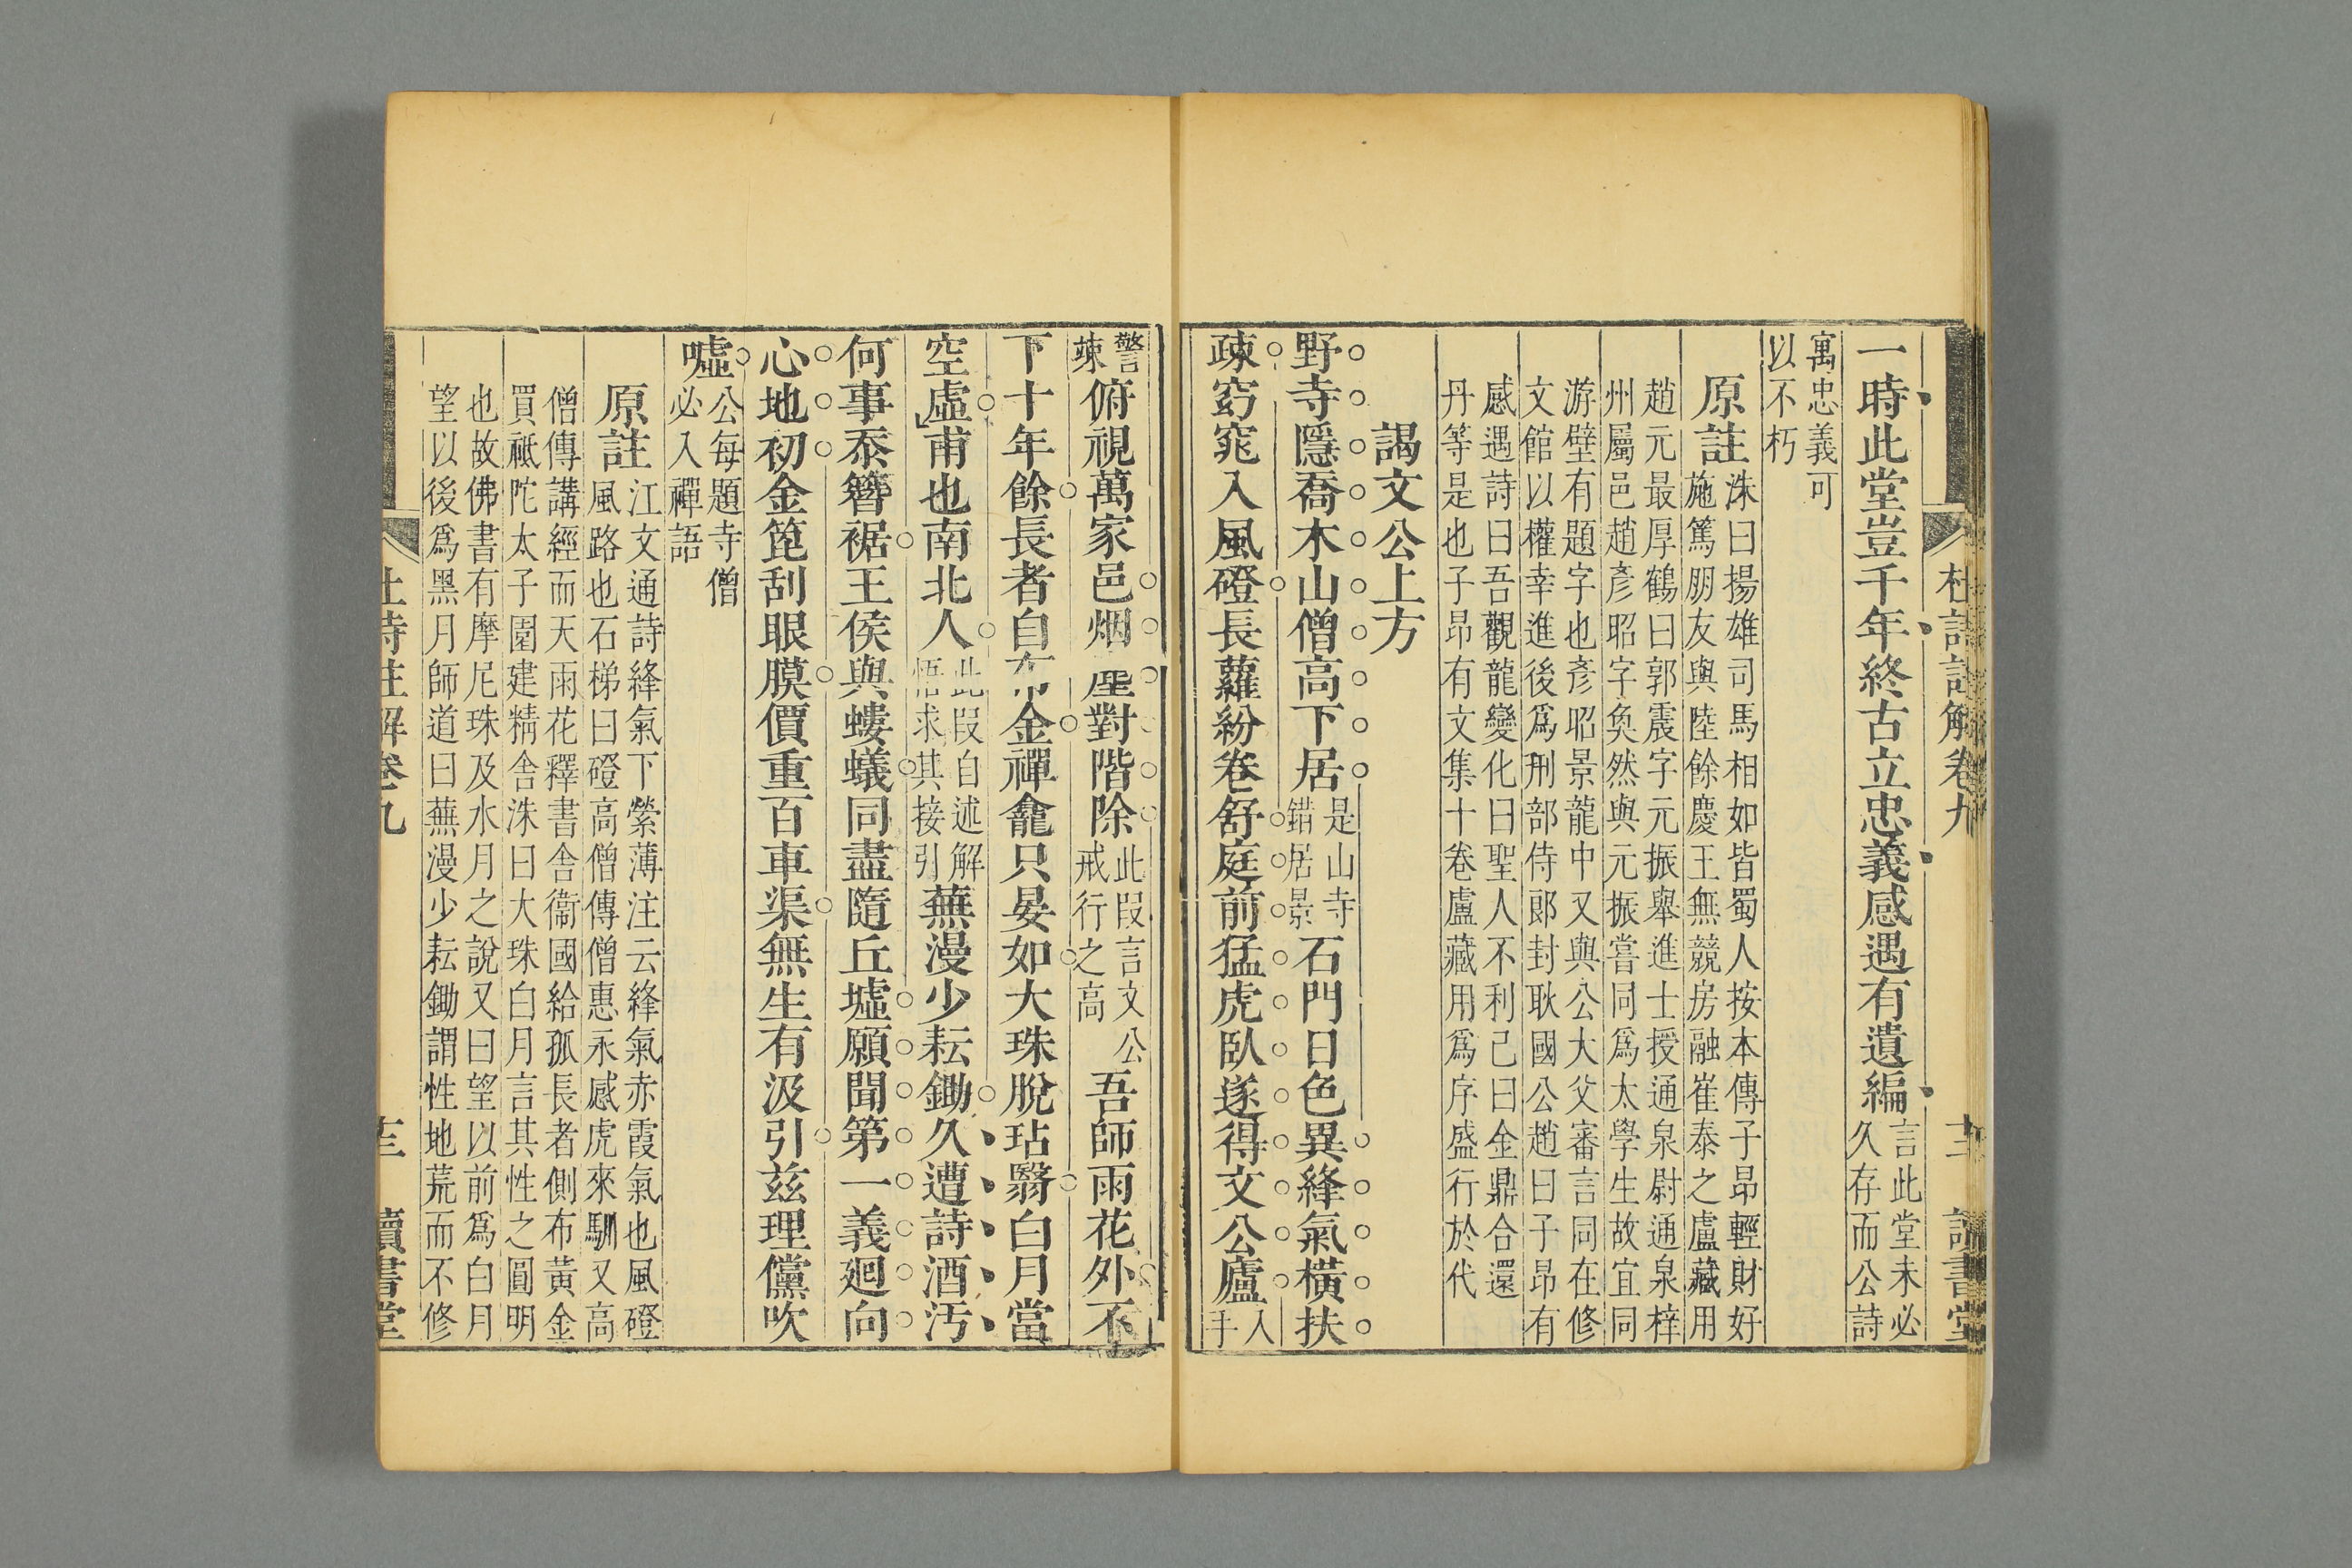 杜詩註解卷九
讀書堂
一時此堂豈千年終古立忠義感遇有遺編
言此堂未必
久存而公詩
寓忠義可
以不朽
原註
洙曰揚雄司馬相如皆蜀人按本傳子昂輕財好
施篤朋友與陸餘慶王無競房融崔泰之盧藏用
趙元最厚鶴曰郭震字元振舉進士授通泉尉通泉梓
州屬邑趙彥昭字奐然與元振嘗同爲太學生故宜同
游壁有題字也彥昭景龍中又與公大父審言同在修
文館以權幸進後爲刑部侍郎封耿國公趙曰子昂有
感遇詩曰吾觀龍變化曰聖人不利己曰金鼎合還
丹等是也子昂有文集十卷盧藏用爲序盛行於代
謁文公上方
野寺隱喬木山僧高下居
是山寺
錯居景
石門日色異絳氣橫扶
疎窈窕入風磴長蘿紛卷舒庭前猛虎臥遂得文公廬
入
手
警
竦
俯視萬家邑烟塵對階除
此段言文公
戒行之高
吾師雨花外不
下十年餘長者自布金禪龕只晏如大珠脫玷翳白月當
空虛甫也南北人
此段自述解
悟求其接引
蕪漫少耘鋤久遭詩酒汚
何事忝簪裾王侯與螻蟻同盡隨丘墟願聞第一義廻向
心地初金篦刮眼膜價重百車渠無生有汲引茲理儻吹
噓
公每題寺僧
必入禪語
原註
江文通詩絳氣下縈薄注云絳氣赤霞氣也風磴
風路也石梯曰磴高僧傳僧惠永感虎來馴又高
僧傳講經而天雨花釋書舍衞國給孤長者側布黃金
買祇陀太子園建精舍洙曰大珠白月言其性之圓明
也故佛書有摩尼珠及水月之說又曰望以前爲白月
望以後爲黑月師道曰蕪漫少耘鋤謂性地荒而不修
杜詩註解卷九
讀書堂